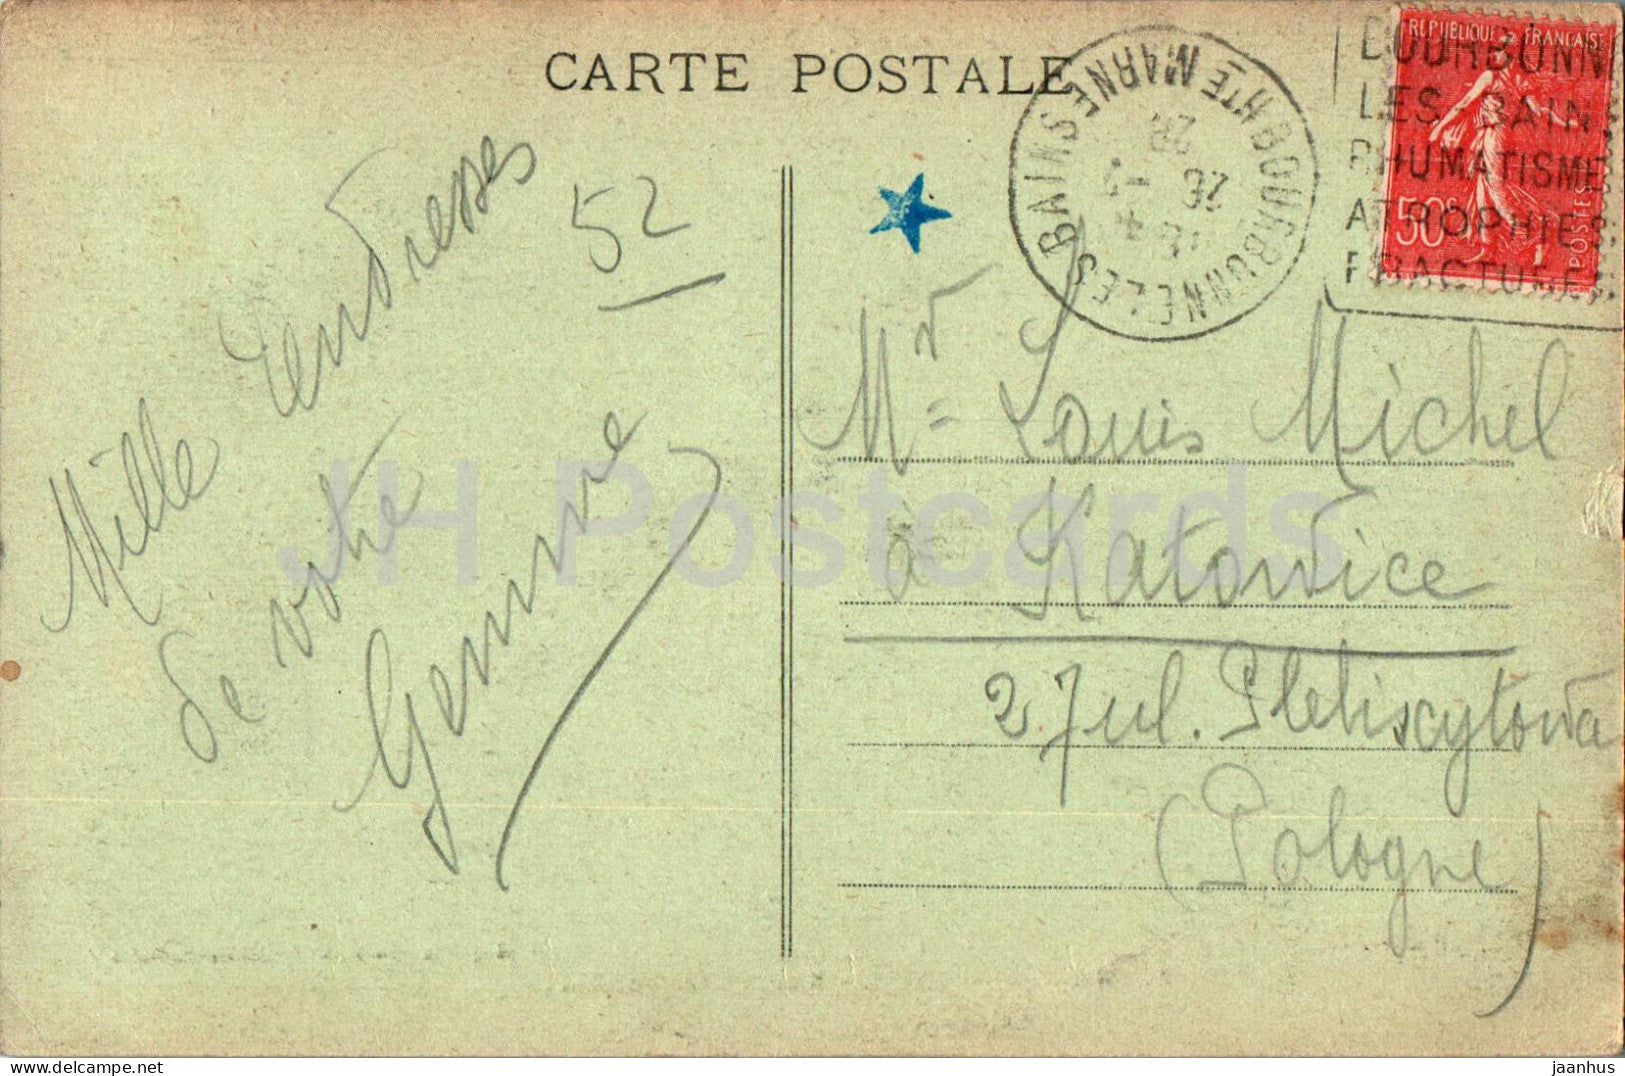 CARTE POSTALE
BOURBONNE LES BAINS HTE MARNE
BOURBONN
LES-BAIN
RHUMATISME
ATROPHIES
FRACTURES
REPUBLIQUE FRANÇAISE
50c
POSTES
52
Mille Tendresses
de votre
Mr = Louis Michel
à Katowice
27 ul. Plebiscytowa
(Pologne)
JH Postcards
jaanhus